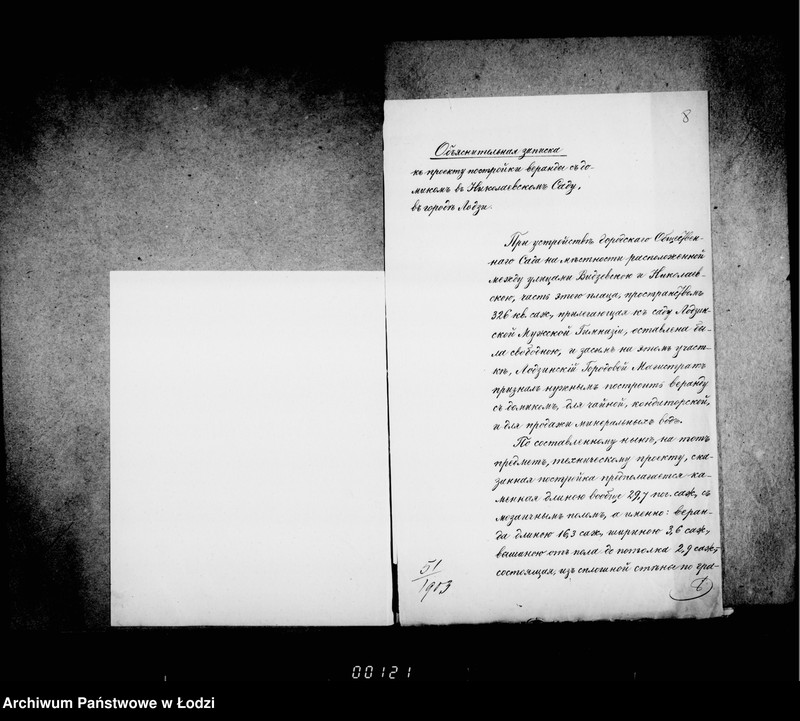 8
Объяснительная записка
къ проекту постройки веранды съ до-
микомъ въ Николаевскомъ Саду,
въ городѣ Лодзи.
При устройствѣ городскаго Обществен-
наго Сада на мѣстности расположенной
между улицами Видзевскою и Николаев-
скою, часть этого плаца, пространствомъ
326 кв. саж., прилегающая къ саду Лодзин-
ской Мужской Гимназіи, оставлена бы-
ла свободною, и засимъ на этомъ участ-
кѣ, Лодзинскій Городовой Магистратъ
призналъ нужнымъ построить веранду
съ домикомъ, для чайной, кондиторской,
и для продажи минеральныхъ водъ.
По составленному нынѣ, на тотъ
предметъ, техническому проекту, ска-
занная постройка предполагается ка-
менная длиною вообще 29,7 пог. саж., съ
мозаичнымъ поломъ, а именно: веран-
да длиною 16,3 саж., шириною 3,6 саж.,
вышиною отъ пола до потолка 2,9 саж.,
состоящая, изъ сплошной стѣны по гра-
51/1903
00121
Archiwum Państwowe w Łodzi